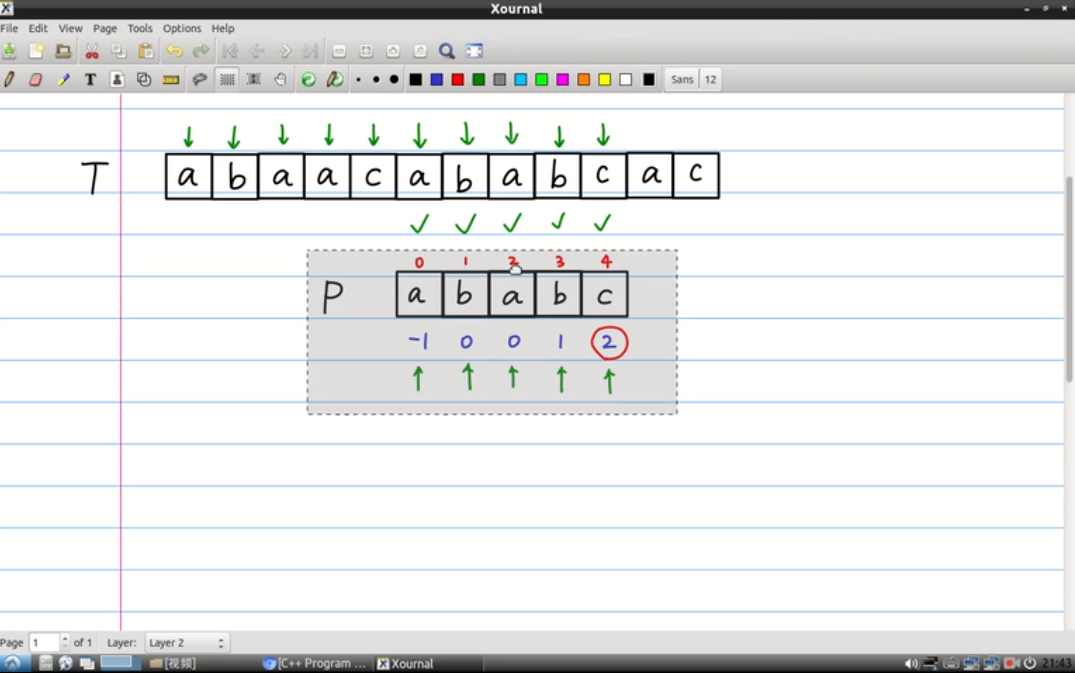 Xournal
File Edit View Page Tools Options Help
T Sans 12
T a b a a c a b a b c a c
0 1 2 3 4
P a b a b c
-1 0 0 1 2
Page 1 of 1 Layer: Layer 2
[视频] [C++ Program ... Xournal 21:43